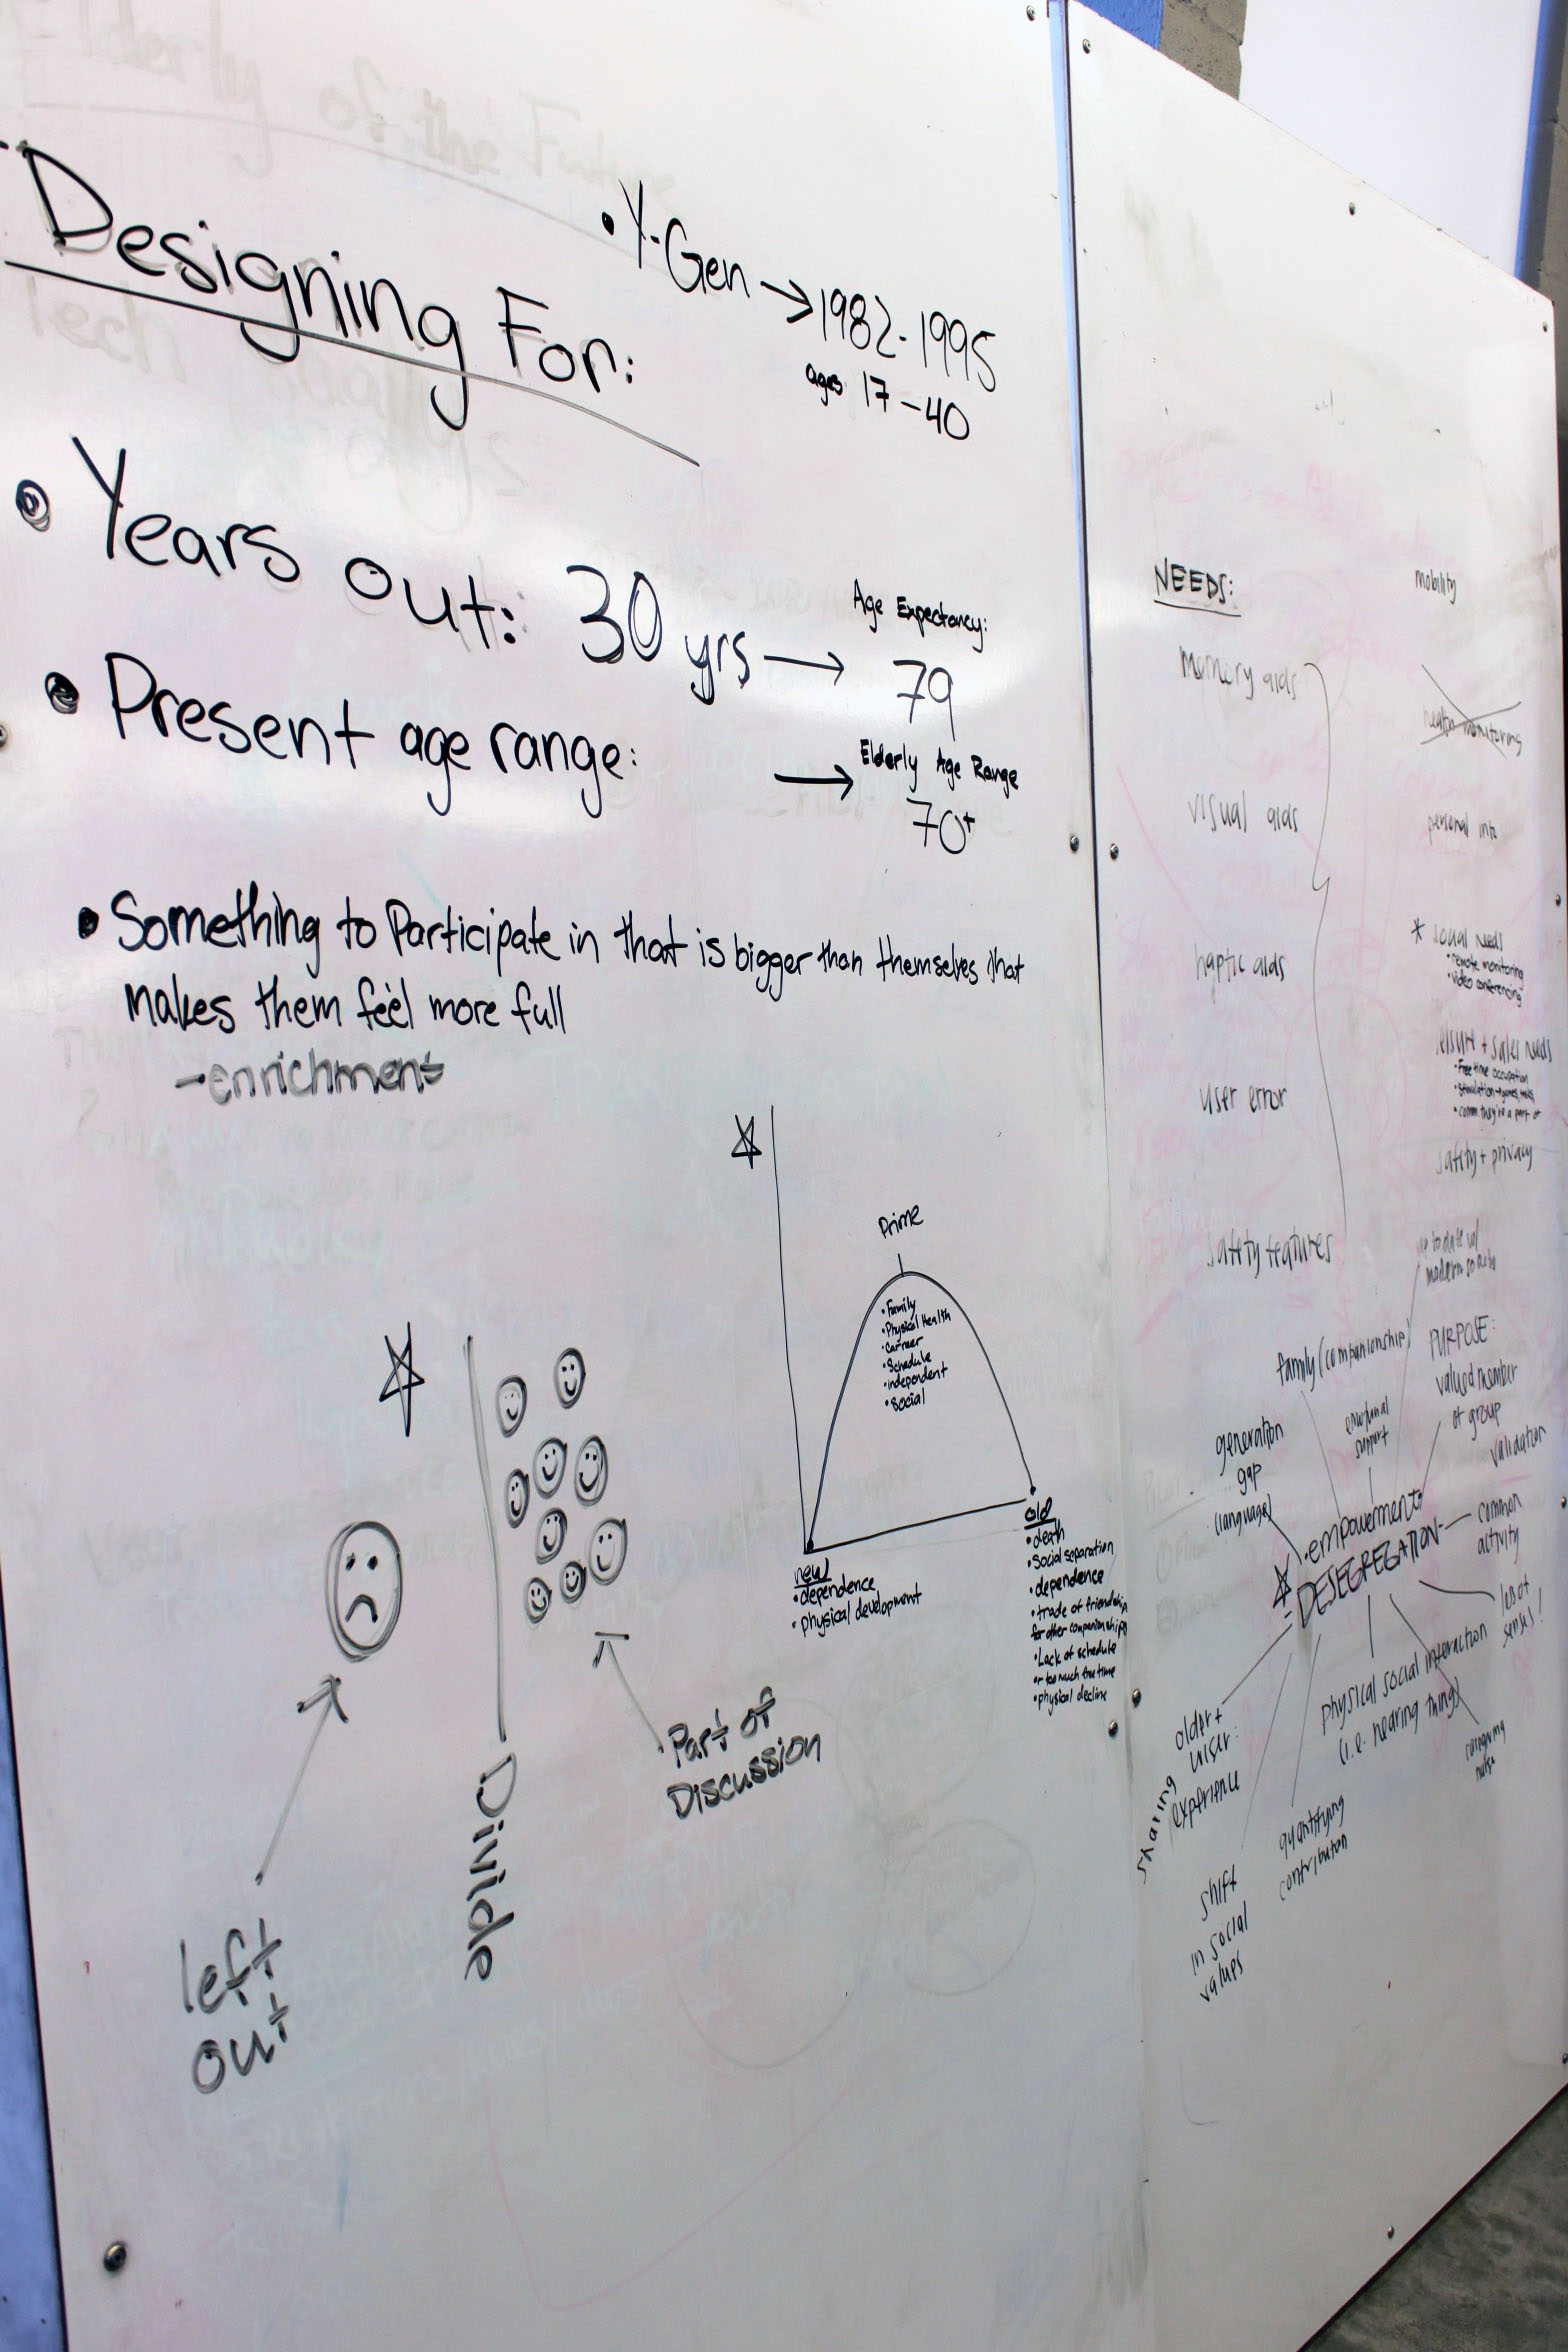 Designing For:
• Y-Gen → 1982-1995
ages 17-40
• Years out: 30 yrs →
Age Expectancy:
79
• Present age range: →
Elderly Age Range
70+
• Something to Participate in that is bigger than themselves that
makes them feel more full
- enrichment
Prime
• Family
• Physical Health
• Carreer
• Schedule
• independent
• Social
new
• dependence
• physical development
old
• death
• Social separation
• dependence
• trade of friendship
for other companionships
• Lack of schedule
or too much free time
• physical decline
left
out
Divide
Part of
Discussion
NEEDS:
memory aids
visual aids
haptic aids
user error
safety features
mobility
health monitoring
personal info
* social needs
• remote monitoring
• video conferencing
leisure + sales needs
• Free time occupation
• Stimulation
• comm. they're a part of
safety + privacy
up to date w/
modern society
family (companionship)
PURPOSE:
valued member
of group
emotional
support
validation
generation
gap
(language)
• empowerment
- DESEGREGATION -
common
activity
senses!
physical social interaction
(i.e. hearing things)
older +
wiser:
sharing
experience
quantifying
contribution
shift
in social
values